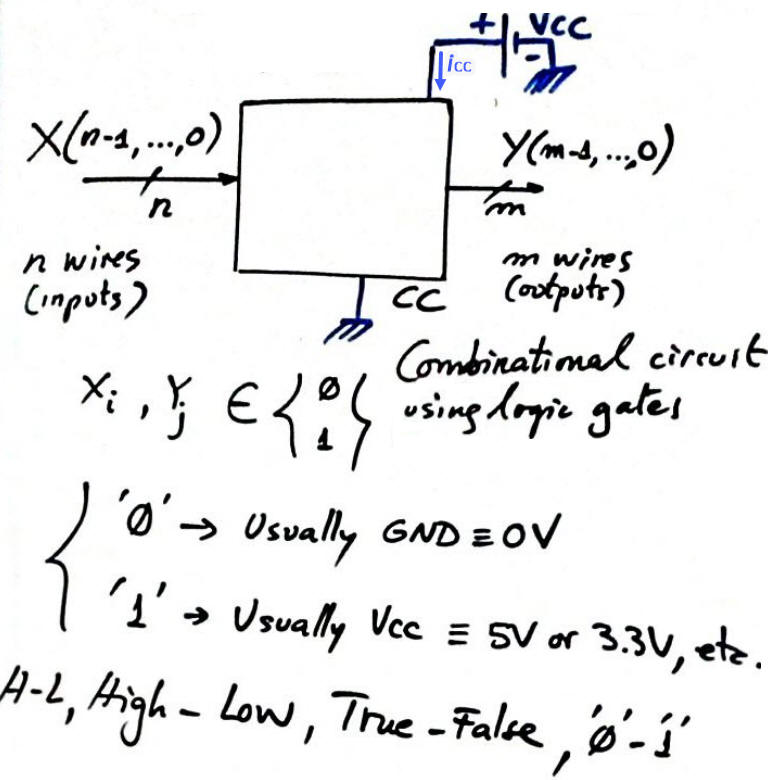 + Vcc
-
icc
X(n-1, ..., 0)
n
Y(m-1, ..., 0)
m
n wires
(inputs)
m wires
(outputs)
CC
Combinational circuit
using logic gates
Xi , Yj ∈ { 0
1 }
'0' → Usually GND ≡ 0V
'1' → Usually Vcc ≡ 5V or 3.3V, etc.
H-L, High - Low, True - False, '0' - '1'